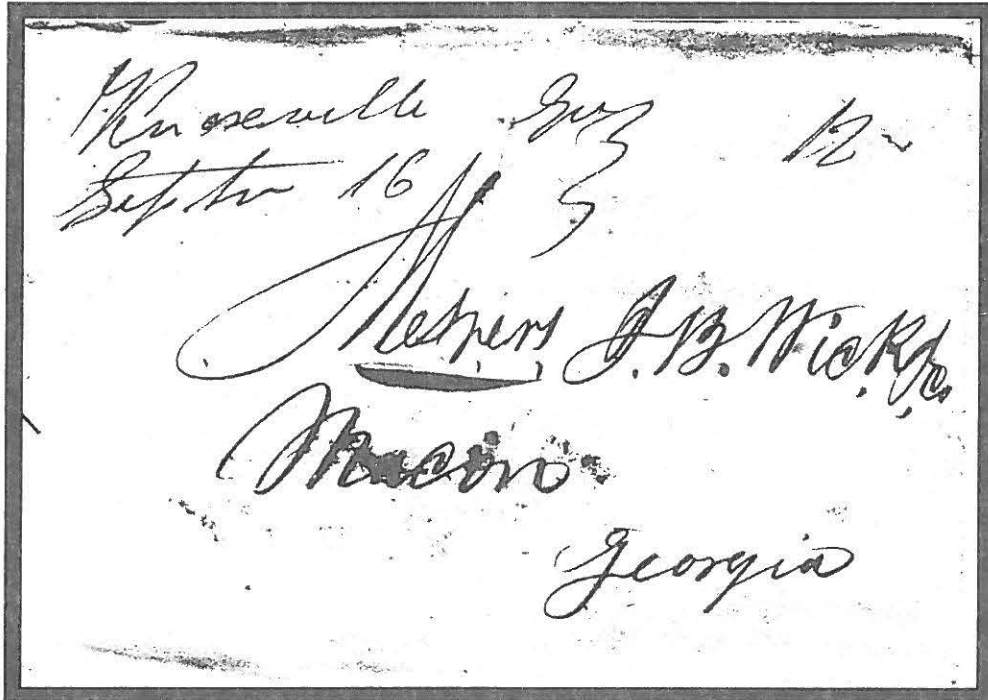 Knoxville Geo 12
Septr 16
Messrs J. B. Wick
Macon
Georgia